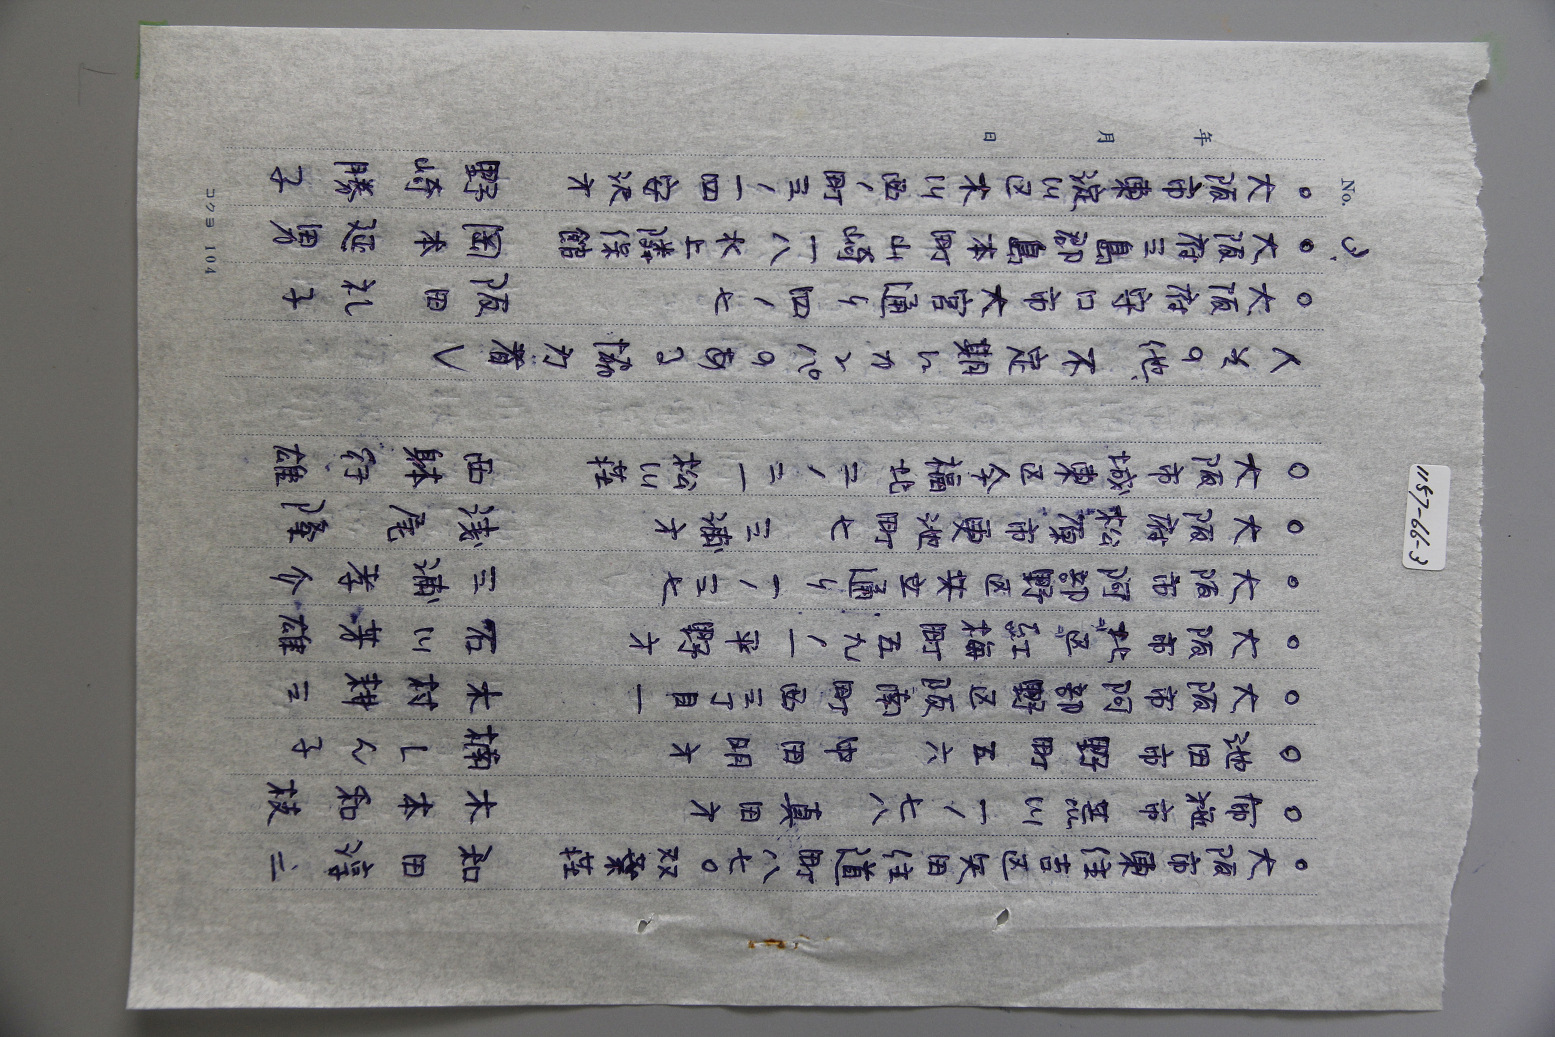 No. 3.
年 月 日
○大阪市東住吉区矢田住道町八七〇双葉荘 和田淳二
○布施市荒川一ノ七八 真田方 木本和枝
○池田市野町五六 中田朗方 楠しん子
○大阪市阿部野区阪南町西三丁目一 木村耕三
○大阪市北区紅梅町五九ノ一平野方 石川芳雄
○大阪市阿部野区共立通り一ノ三七 三浦孝介
○大阪府松原市更池町七 三浦方 浅尾隆
○大阪市城東区今福北二ノ二一松山荘 西林行雄
〈その他 不定期にカンパのある協力者〉
○大阪府守口市大宮通り四ノ七 阪田礼子
○大阪府三島郡島本町山崎一八水上隣保館 岡本延男
○大阪市東淀川区木川西ノ町三ノ一四宮沢方 野崎勝子
コクヨ 104
1157-66-3